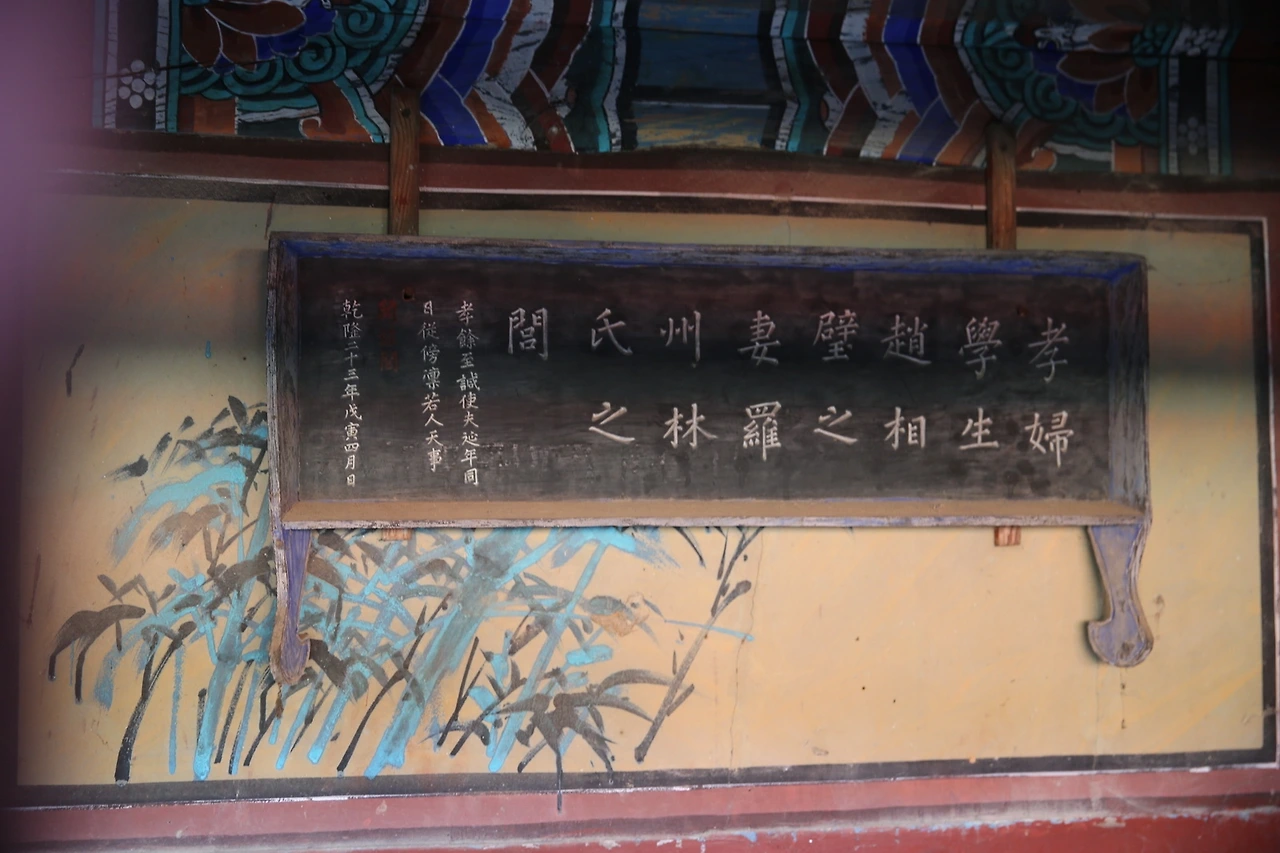 孝婦
學生
趙相
璧之
妻羅
州林
氏之
閭
孝餘至誠使夫延年同
日從傍凛若人天事
乾隆二十三年戊寅四月日